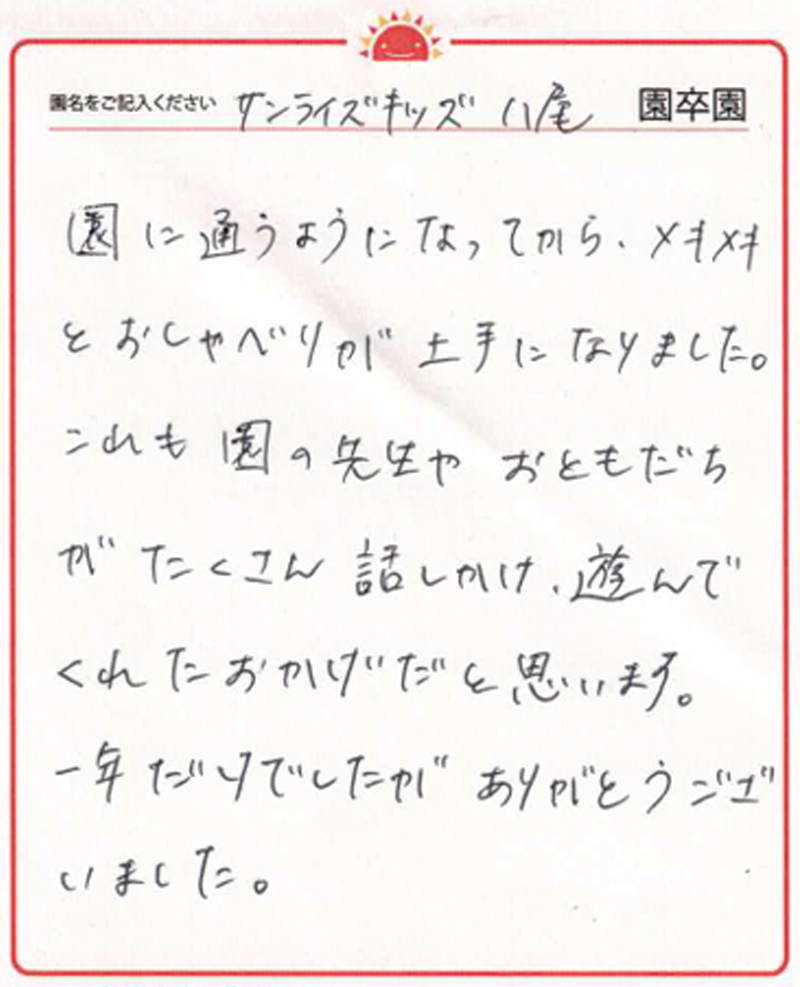 園名をご記入ください サンライズキッズ 八尾 園卒園
園に通うようになってから、メキメキ
とおしゃべりが上手になりました。
これも園の先生や おともだち
がたくさん 話しかけ、遊んで
くれたおかげだと思います。
一年だけでしたが ありがとうござ
いました。